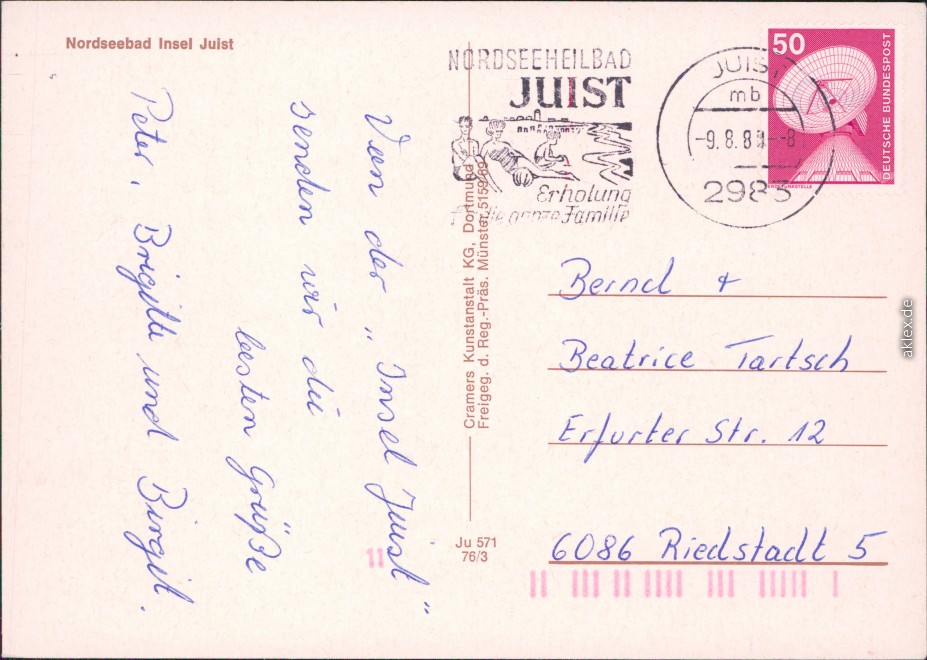 Nordseebad Insel Juist
NORDSEEHEILBAD
JUIST
Erholung
für die ganze Familie
JUIST
mb
-9.8.8 -8
2983
50
DEUTSCHE BUNDESPOST
ERDEFUNKSTELLE
Von der „Insel Juist"
senden wir die
besten Grüße
Peter, Brigitte und Birgit.
Cramers Kunstanstalt KG, Dortmund
Freigeg. d. Reg.-Präs. Münster, 5159/69
Ju 571
76/3
Bernd +
Beatrice Tartsch
Erfurter Str. 12
6086 Riedstadt 5
aklex.de